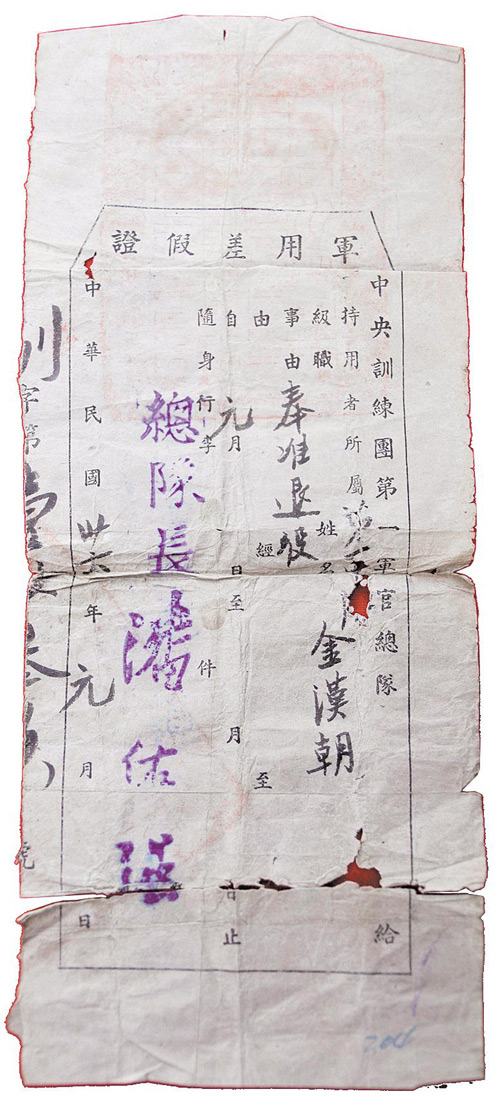 軍用差假證
中央訓練團第一軍官總隊 給
持用者所屬
級職 姓名 金漢朝
事由 奉准退役
由 經 至
自 元月 日至 月 日止
隨身行李 件
總隊長
中華民國卅六年元月 日
訓字第 號